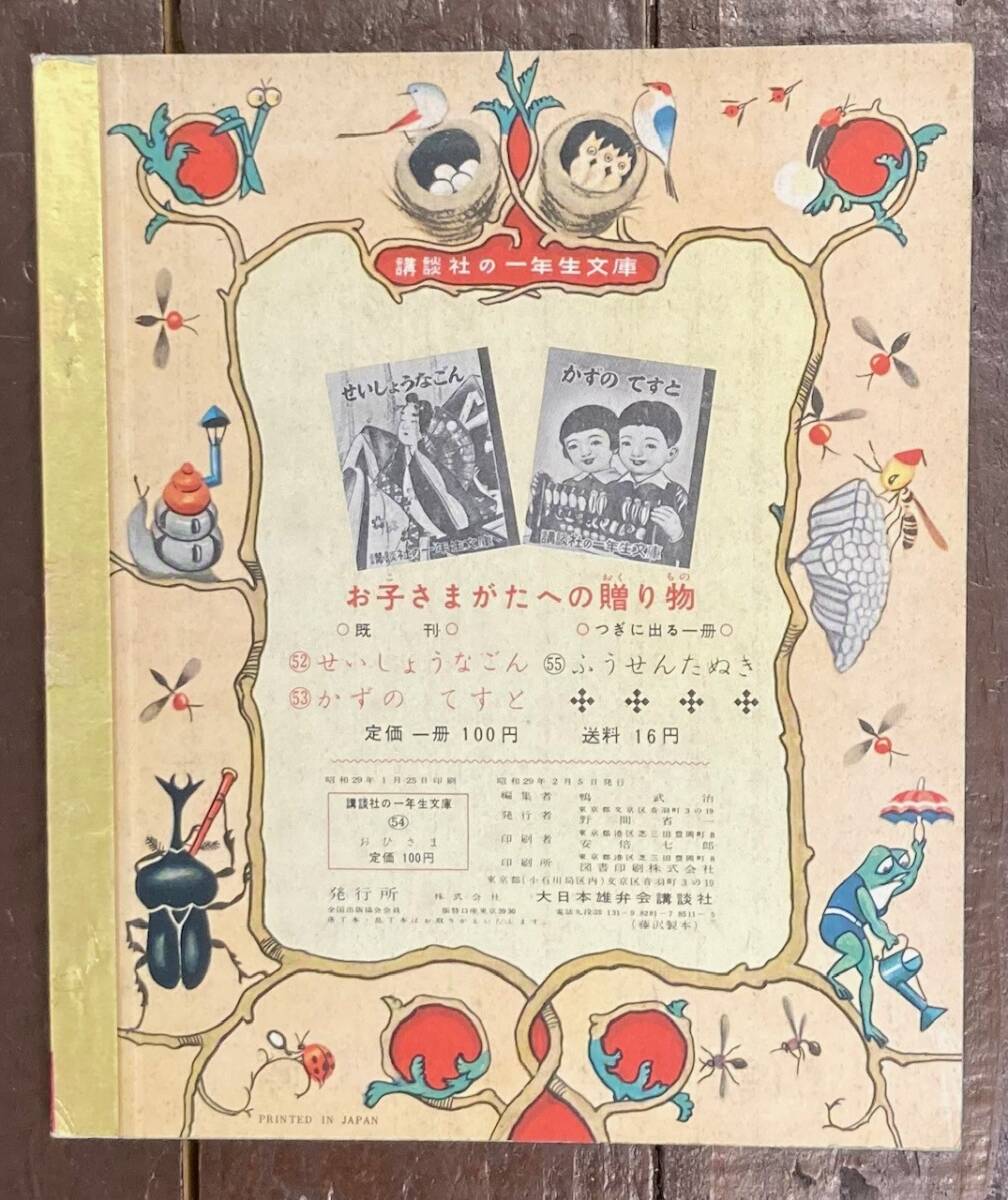 講談社の一年生文庫
せいしょうなごん
講談社の一年生文庫
かずの てすと
講談社の一年生文庫
お子さまがたへの贈り物
○既 刊○ ○つぎに出る一冊○
52 せいしょうなごん 55 ふうせんたぬき
53 かずの てすと
定価 一冊 100円 送料 16円
昭和29年1月25日印刷 昭和29年2月5日発行
講談社の一年生文庫
54
おひさま
定価 100円
編集者 鴨 武治
東京都文京区音羽町3の19
発行者 野間省一
東京都港区芝三田豊岡町8
印刷者 安倍七郎
東京都港区芝三田豊岡町8
印刷所 図書印刷株式会社
東京都(小石川局区内)文京区音羽町3の19
発行所 株式会社 大日本雄弁会講談社
全国出版協会会員 振替口座東京3930
落丁本・乱丁本はお取りかえいたします。 (藤沢製本)
PRINTED IN JAPAN